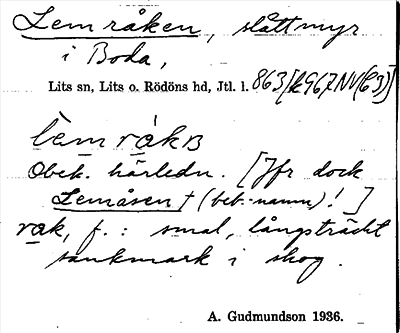 Lemråken, slåttmyr
i Boda,
Lits sn, Lits o. Rödöns hd, Jtl. l. 863 [k967NV(C3)]
lèm råkɐn
Obek. härledn. [Jfr dock
Lemåsen † (beb.-namn)! ]
råk, f. : smal, långsträckt
sankmark i skog.
A. Gudmundson 1936.